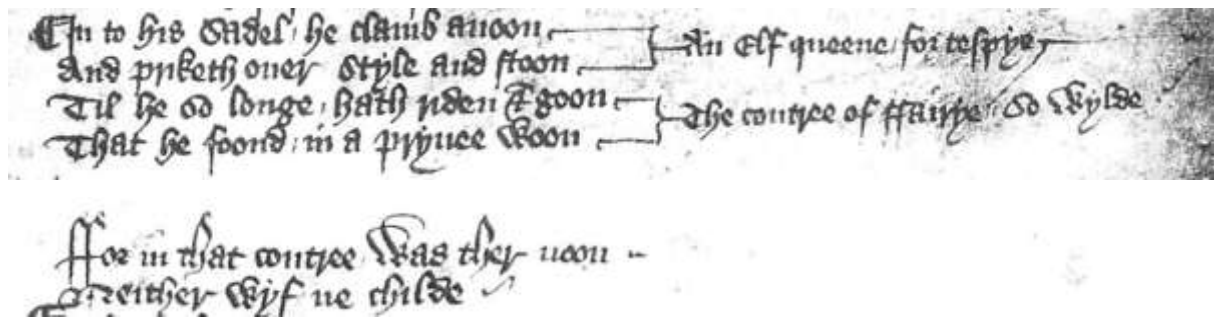 In to his Sadel / he clamb anoon
And priketh ouer Style and stoon
An Elf queene / for tespye
Til he so longe / hath riden & goon
That he foond / in a pryuee woon
The contree of ffairye / So wylde
ffor in that contree / was ther noon
Neither wyf ne childe